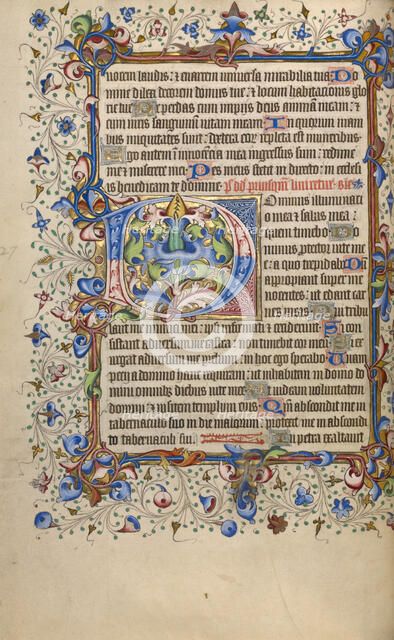 vocem laudis: & enarrem universa mirabilia tua: Do
mine dilexi decorem domus tue: & locum habitationis glo
rie tue: Ne perdas cum impiis deus animam meam: &
cum viris sanguinum vitam meam: In quorum mani
bus iniquitates sunt: dextera eorum repleta est muneribus:
Ego autem in innocencia mea ingressus sum: redime
me & miserere mei: Pes meus stetit in directo: in ecclesi
is benedicam te domine: ps dd priusquam liniretur
Dominus illuminatio
mea & salus mea:
quem timebo
Dominus protector vite me
e: a quo trepidabo Dum
appropiant super me
nocentes: ut edant car
nes meas: Qui tribu
lant me inimici mei: ipsi infirmati & ceciderunt: Si con
sistant adversum me castra: non timebit cor meum: Si ex
urgat adversum me prelium: in hoc ego sperabo: Unam
pecii a domino hanc requiram: ut inhabitem in domo do
mini omnibus diebus vite mee: Ut videam voluntatem
domini: & visitem templum eius: Quoniam abscondit me in
tabernaculo suo in die malorum: protexit me in abscondi
to tabernaculi sui: In petra exaltavit